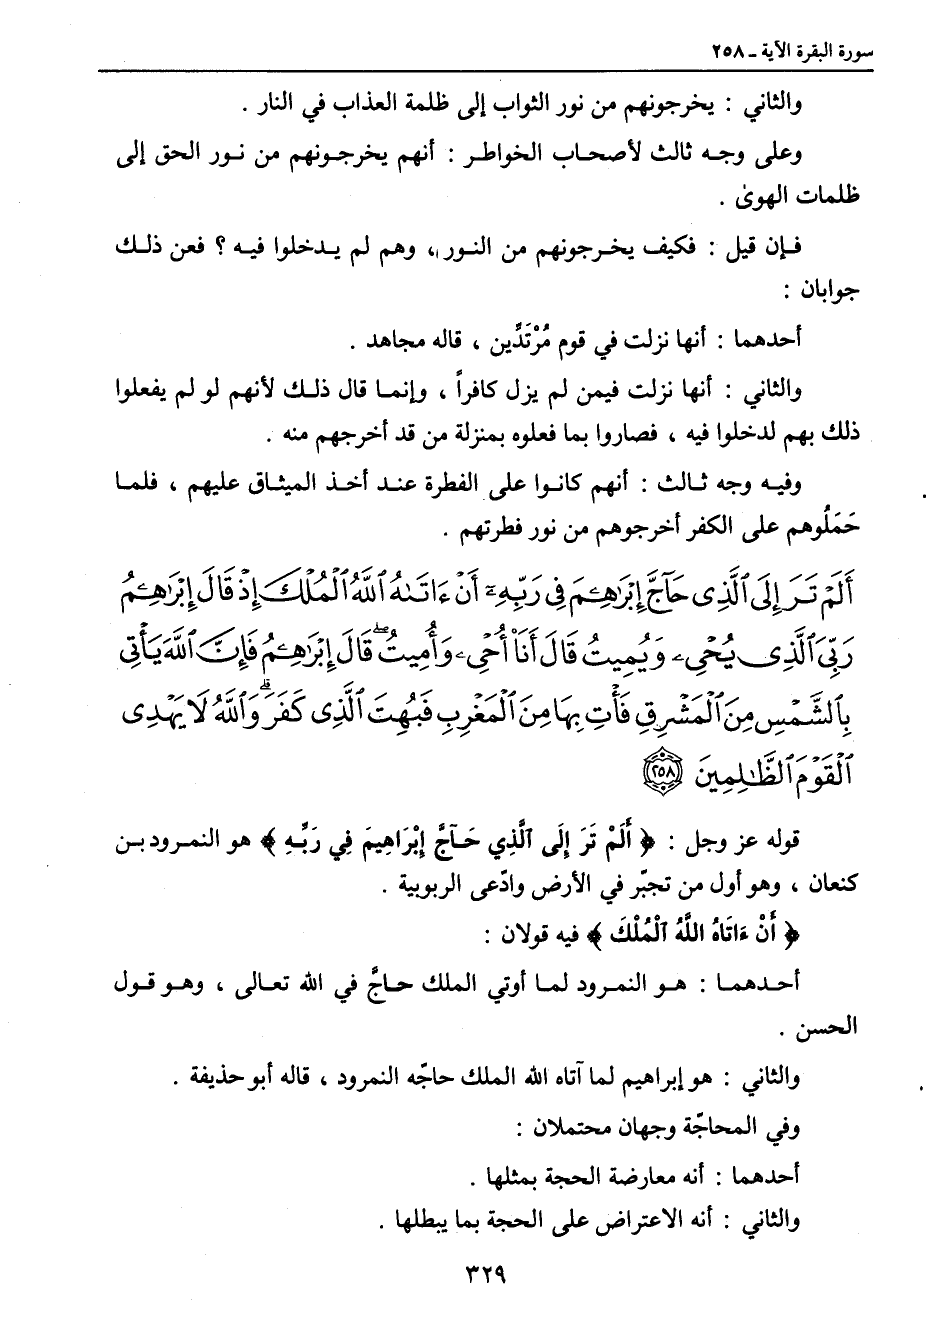 سورة البقرة الآية ـ ٢٥٨
والثاني : يخرجونهم من نور الثواب إلى ظلمة العذاب في النار .
وعلى وجه ثالث لأصحاب الخواطر : أنهم يخرجونهم من نور الحق إلى
ظلمات الهوىٰ .
فإن قيل : فكيف يخرجونهم من النور ، وهم لم يدخلوا فيه ؟ فعن ذلك
جوابان :
أحدهما : أنها نزلت في قوم مُرْتَدِّين ، قاله مجاهد .
والثاني : أنها نزلت فيمن لم يزل كافراً ، وإنما قال ذلك لأنهم لو لم يفعلوا
ذلك بهم لدخلوا فيه ، فصاروا بما فعلوه بمنزلة من قد أخرجهم منه .
وفيه وجه ثالث : أنهم كانوا على الفطرة عند أخذ الميثاق عليهم ، فلما
حَمَلُوهم على الكفر أخرجوهم من نور فطرتهم .
أَلَمْ تَرَ إِلَى ٱلَّذِى حَآجَّ إِبْرَٰهِـۧمَ فِى رَبِّهِۦٓ أَنْ ءَاتَىٰهُ ٱللَّهُ ٱلْمُلْكَ إِذْ قَالَ إِبْرَٰهِـۧمُ
رَبِّىَ ٱلَّذِى يُحْىِۦ وَيُمِيتُ قَالَ أَنَا۠ أُحْىِۦ وَأُمِيتُ ۖ قَالَ إِبْرَٰهِـۧمُ فَإِنَّ ٱللَّهَ يَأْتِى
بِٱلشَّمْسِ مِنَ ٱلْمَشْرِقِ فَأْتِ بِهَا مِنَ ٱلْمَغْرِبِ فَبُهِتَ ٱلَّذِى كَفَرَ ۗ وَٱللَّهُ لَا يَهْدِى
ٱلْقَوْمَ ٱلظَّـٰلِمِينَ ٢٥٨
قوله عز وجل : ﴿ أَلَمْ تَرَ إِلَى ٱلَّذِي حَآجَّ إِبْرَاهِيمَ فِي رَبِّهِ ﴾ هو النمرود بن
كنعان ، وهو أول من تجبّر في الأرض وادّعى الربوبية .
﴿ أَنْ ءَاتَاهُ اللَّهُ ٱلْمُلْكَ ﴾ فيه قولان :
أحدهما : هو النمرود لما أوتي الملك حاجَّ في الله تعالى ، وهو قول
الحسن .
والثاني : هو إبراهيم لما آتاه الله الملك حاجّه النمرود ، قاله أبو حذيفة .
وفي المحاجّة وجهان محتملان :
أحدهما : أنه معارضة الحجة بمثلها .
والثاني : أنه الاعتراض على الحجة بما يبطلها .
٣٢٩